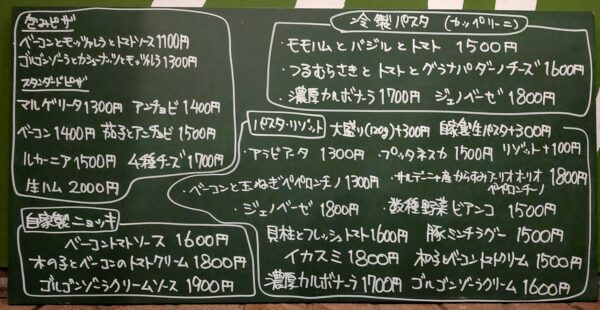 包みピザ
ベーコンとモッツァレラとトマトソース 1100円
ゴルゴンゾーラとカシューナッツとモッツァレラ 1300円
スタンダードピザ
マルゲリータ 1300円 アンチョビ 1400円
ベーコン 1400円 茄子とアンチョビ 1500円
ルカーニア 1500円 4種チーズ 1700円
生ハム 2000円
自家製ニョッキ
ベーコントマトソース 1600円
木の子とベーコンのトマトクリーム 1800円
ゴルゴンゾーラクリームソース 1900円
冷製パスタ (カッペリーニ)
・モモハムとバジルとトマト 1500円
・つるむらさきとトマトとグラナパダーノチーズ 1600円
・濃厚カルボナーラ 1700円 ジェノベーゼ 1800円
パスタ・リゾット 大盛り(120g)+300円 自家製生パスタ+300円
・アラビアータ 1300円 ・プッタネスカ 1500円 リゾット+100円
・ベーコンと玉ねぎペペロンチーノ 1300円 ・サルデーニャ産からすみアーリオオーリオペペロンチーノ 1800円
・ジェノベーゼ 1800円 ・数種野菜ビアンコ 1500円
貝柱とフレッシュトマト 1600円 豚ミンチラグー 1500円
イカスミ 1800円 木の子とベーコントマトクリーム 1500円
濃厚カルボナーラ 1700円 ゴルゴンゾーラクリーム 1600円